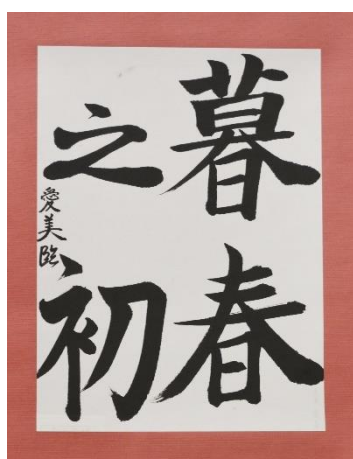 暮春
之初
愛美臨